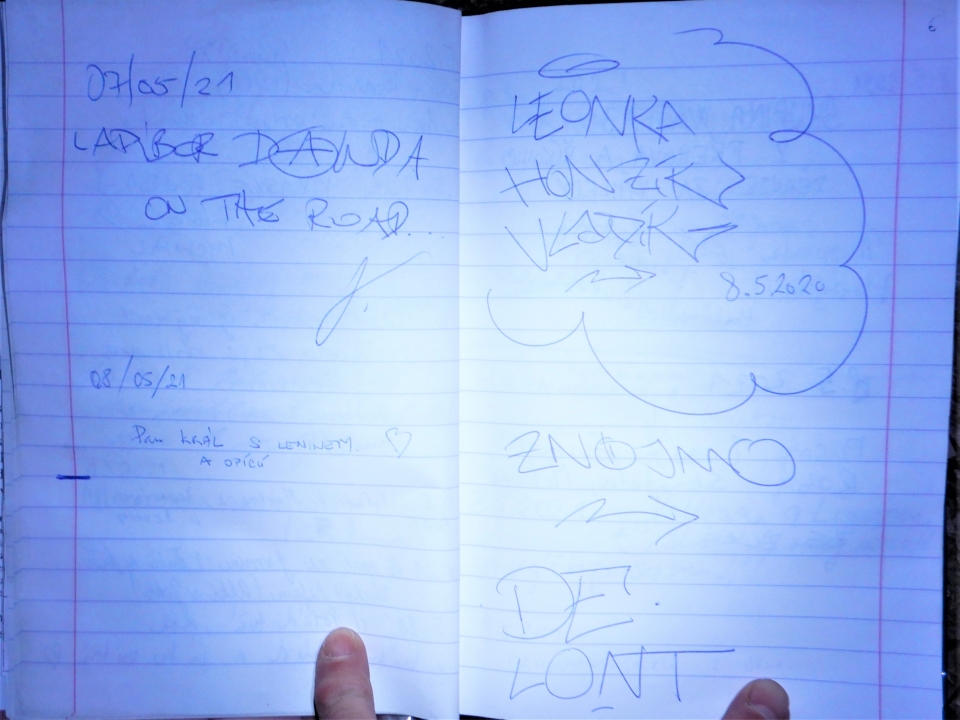 07/05/21
ON THE ROAD...
08/05/21
PAN KRÁL S LENINEM
A OPICÍ
6
LEONKA
HONZÍK
VLADÍK
8.5.2020
ZNOJMO
DE
LONT